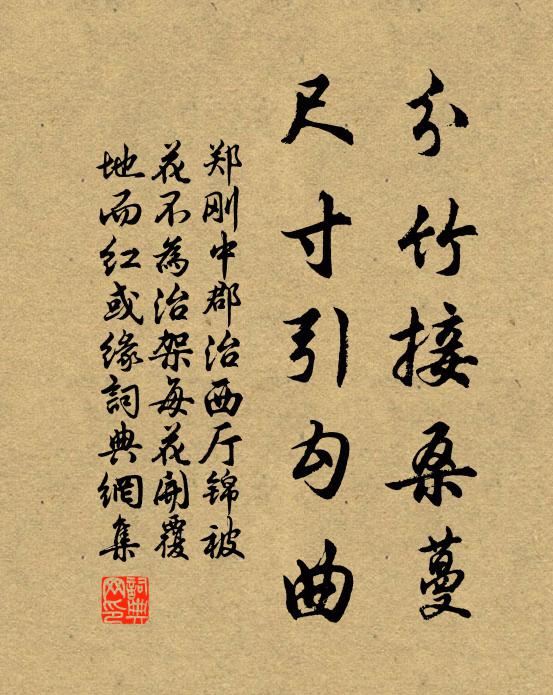 分竹接桑蔓
尺寸引勾曲
郑刚中郡治西厅锦被
花不為治架每花開覆
地而红或缘詞典網集
詞典网印